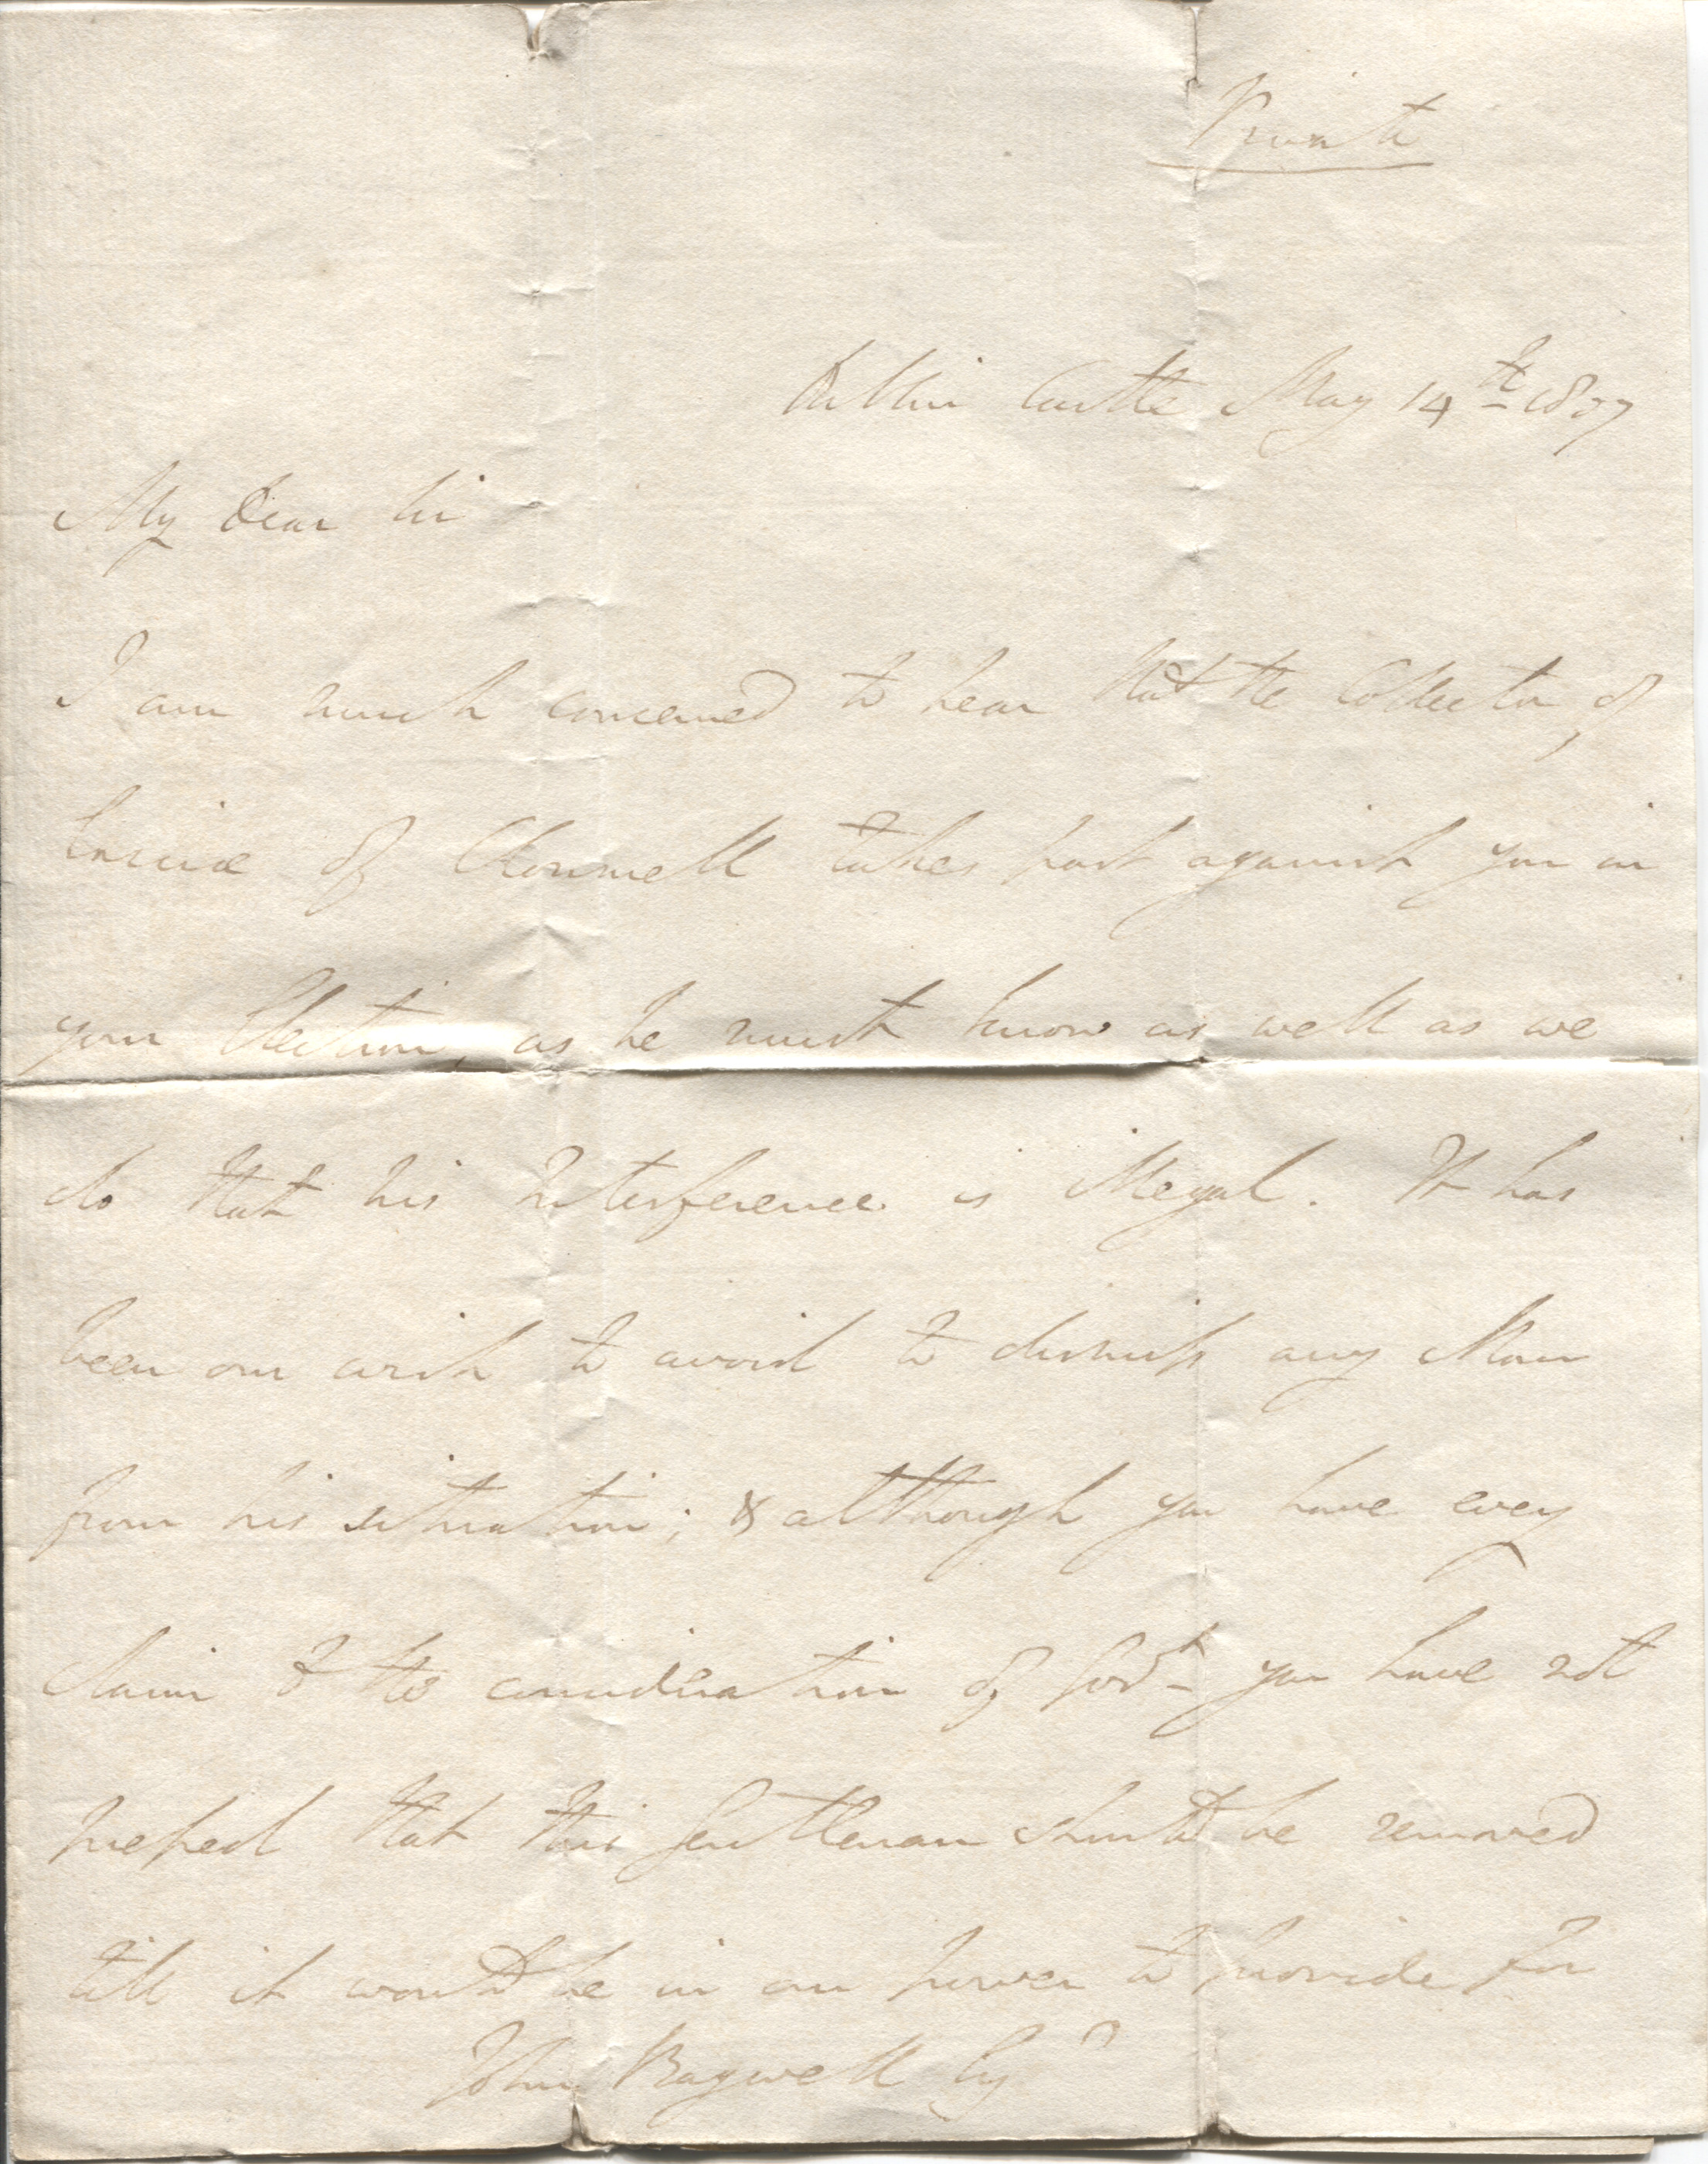 Private
Dublin Castle May 14th 1807
My Dear Sir
I am much concerned to hear that the Collector of
Excise of Clonmell takes part against you in
your Election, as he must know as well as we
do that his Interference is illegal. It has
been our wish to avoid to dismiss any Man
from his situation; & although you have every
claim to the consideration of Govt. you have not
pressed that this Gentleman should be removed
till it would be in our power to provide for
John Bagwell Esqr